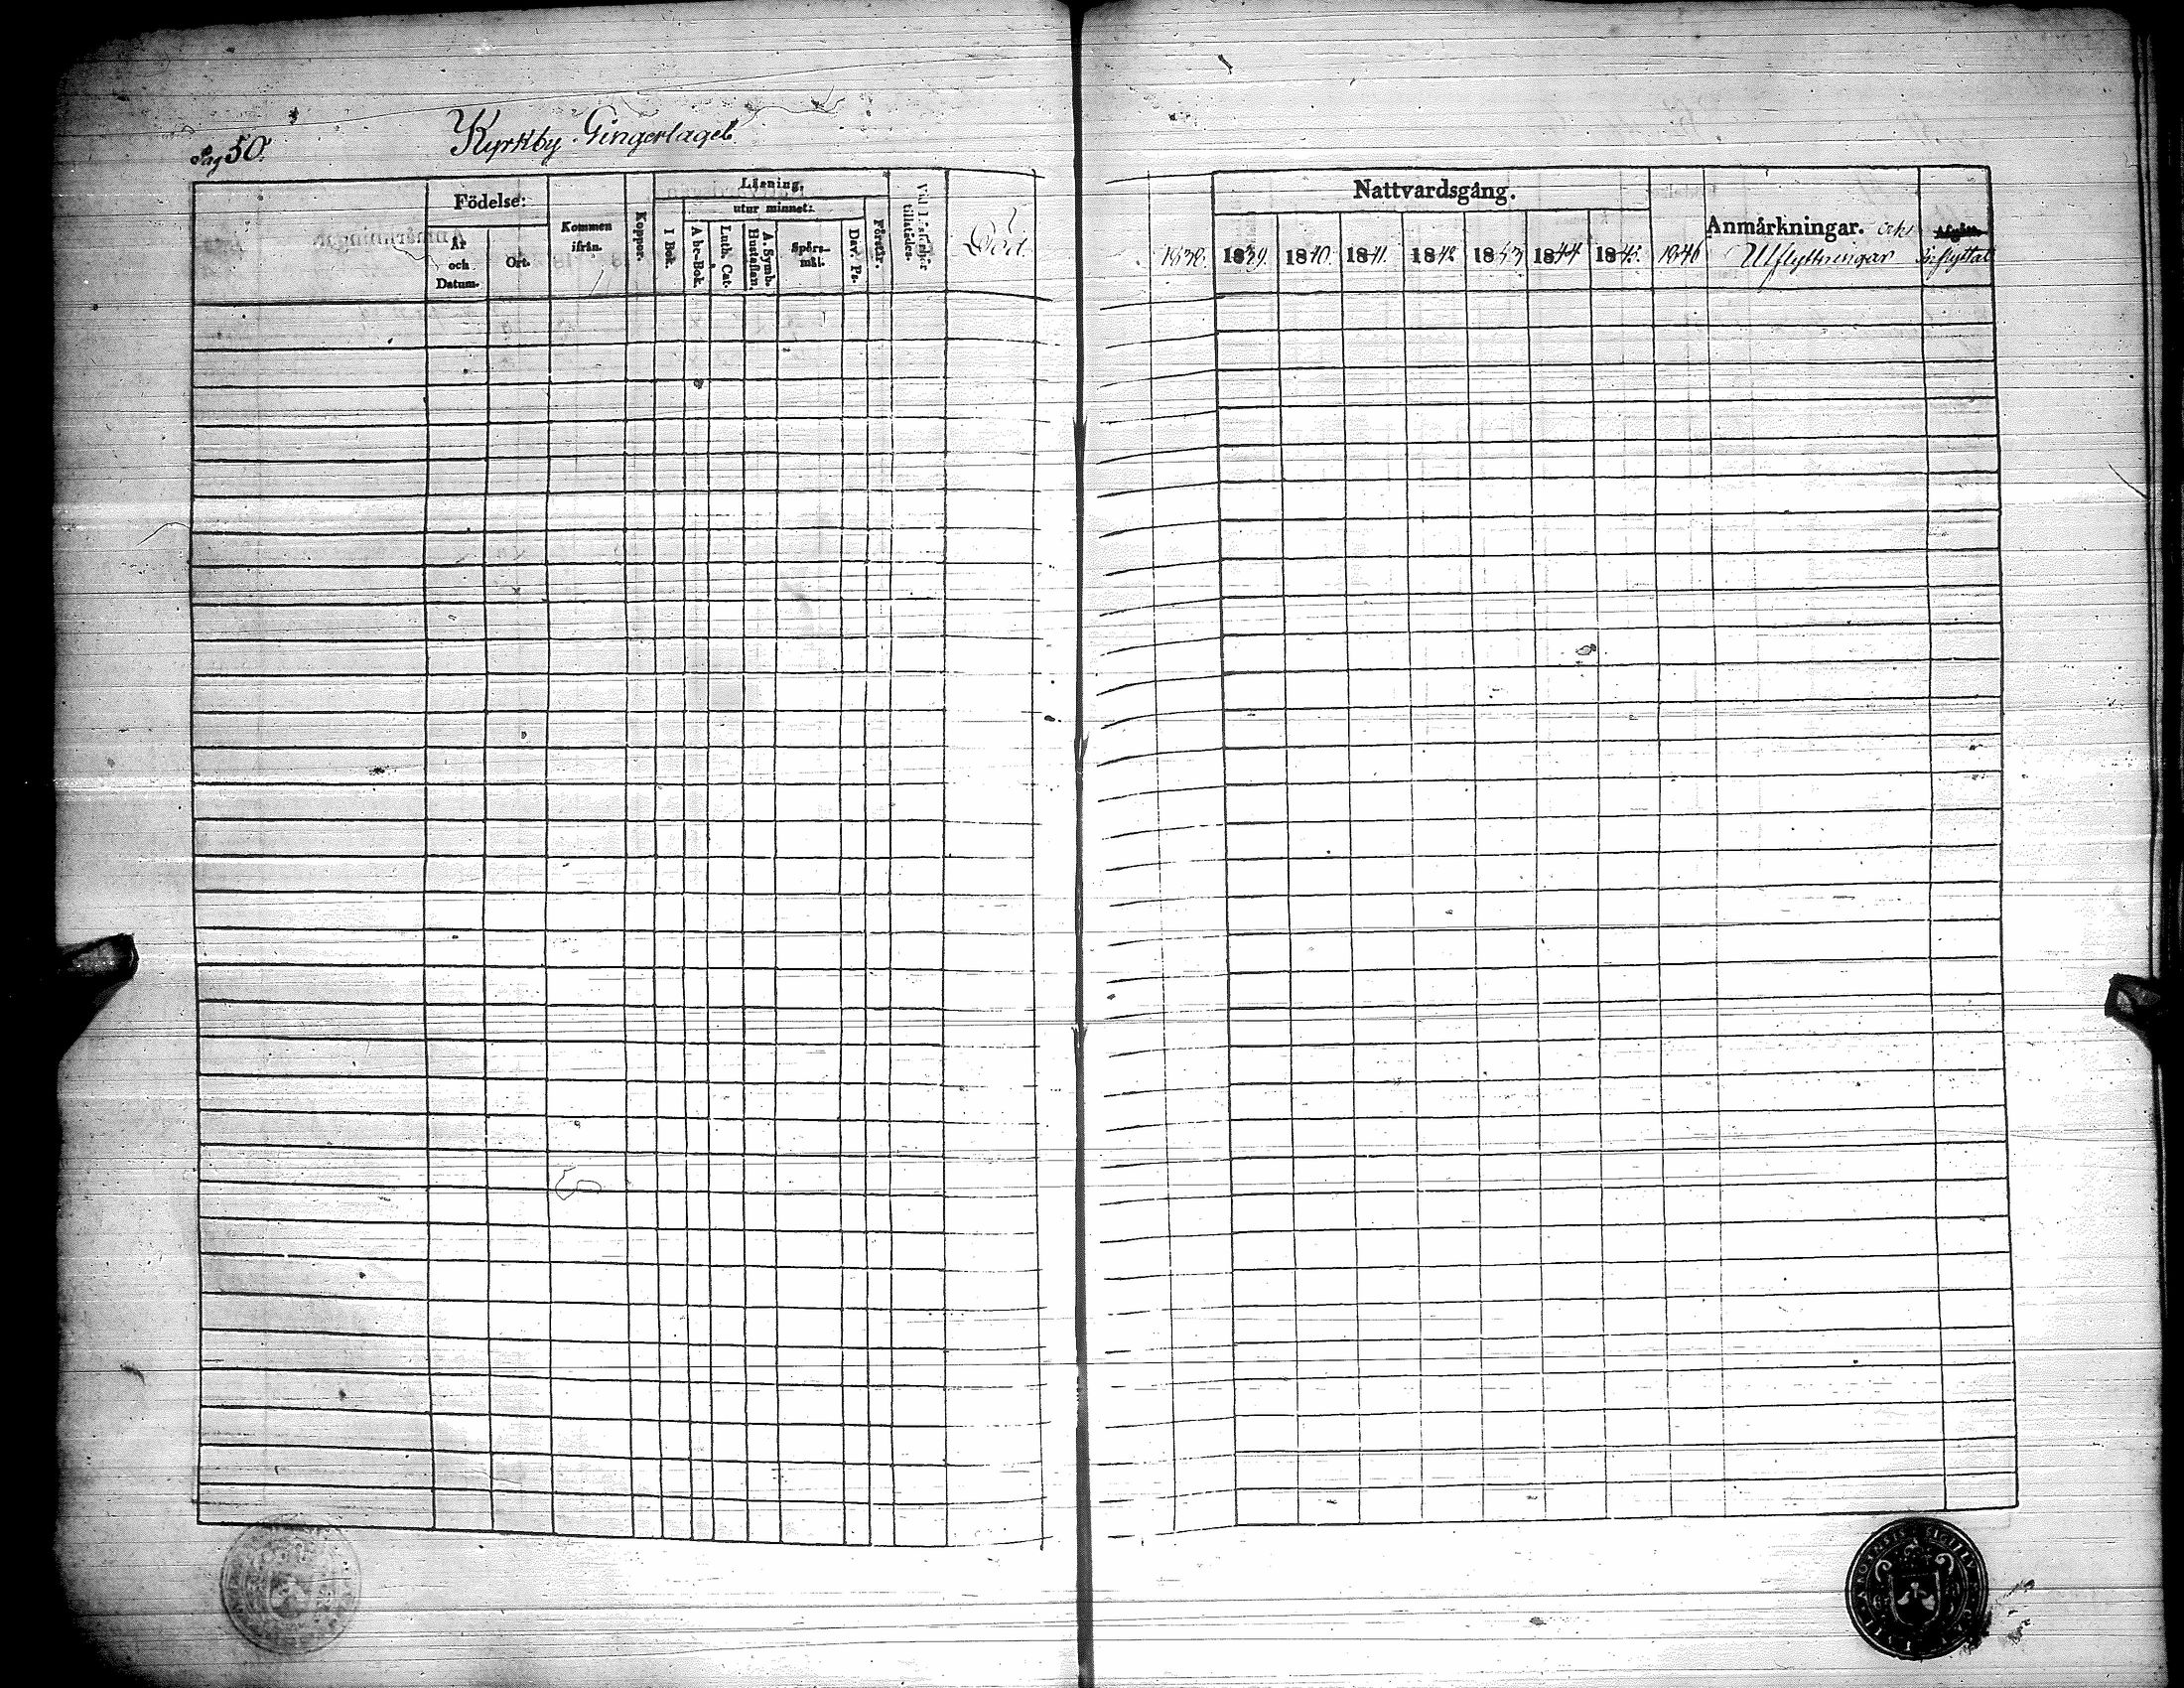 Pag 50.
Kyrkby Gingerlaget
Födelse:
År och Datum.
Ort.
Kommen ifrån.
Koppor.
Läsning.
I Bok.
utur minnet:
A be-Bok.
Luth. Cat.
A. Symb. Hustaflan
Spörs-mål.
Dav. Ps.
Förstår.
Vid Läsförhör tillstädes.
Död.
Nattvardsgång.
1838. 1839. 1840. 1841. 1842 1843 1844 1845. 1846
Anmärkningar. och
Utflyttningar
Afgått.
Inflyttat